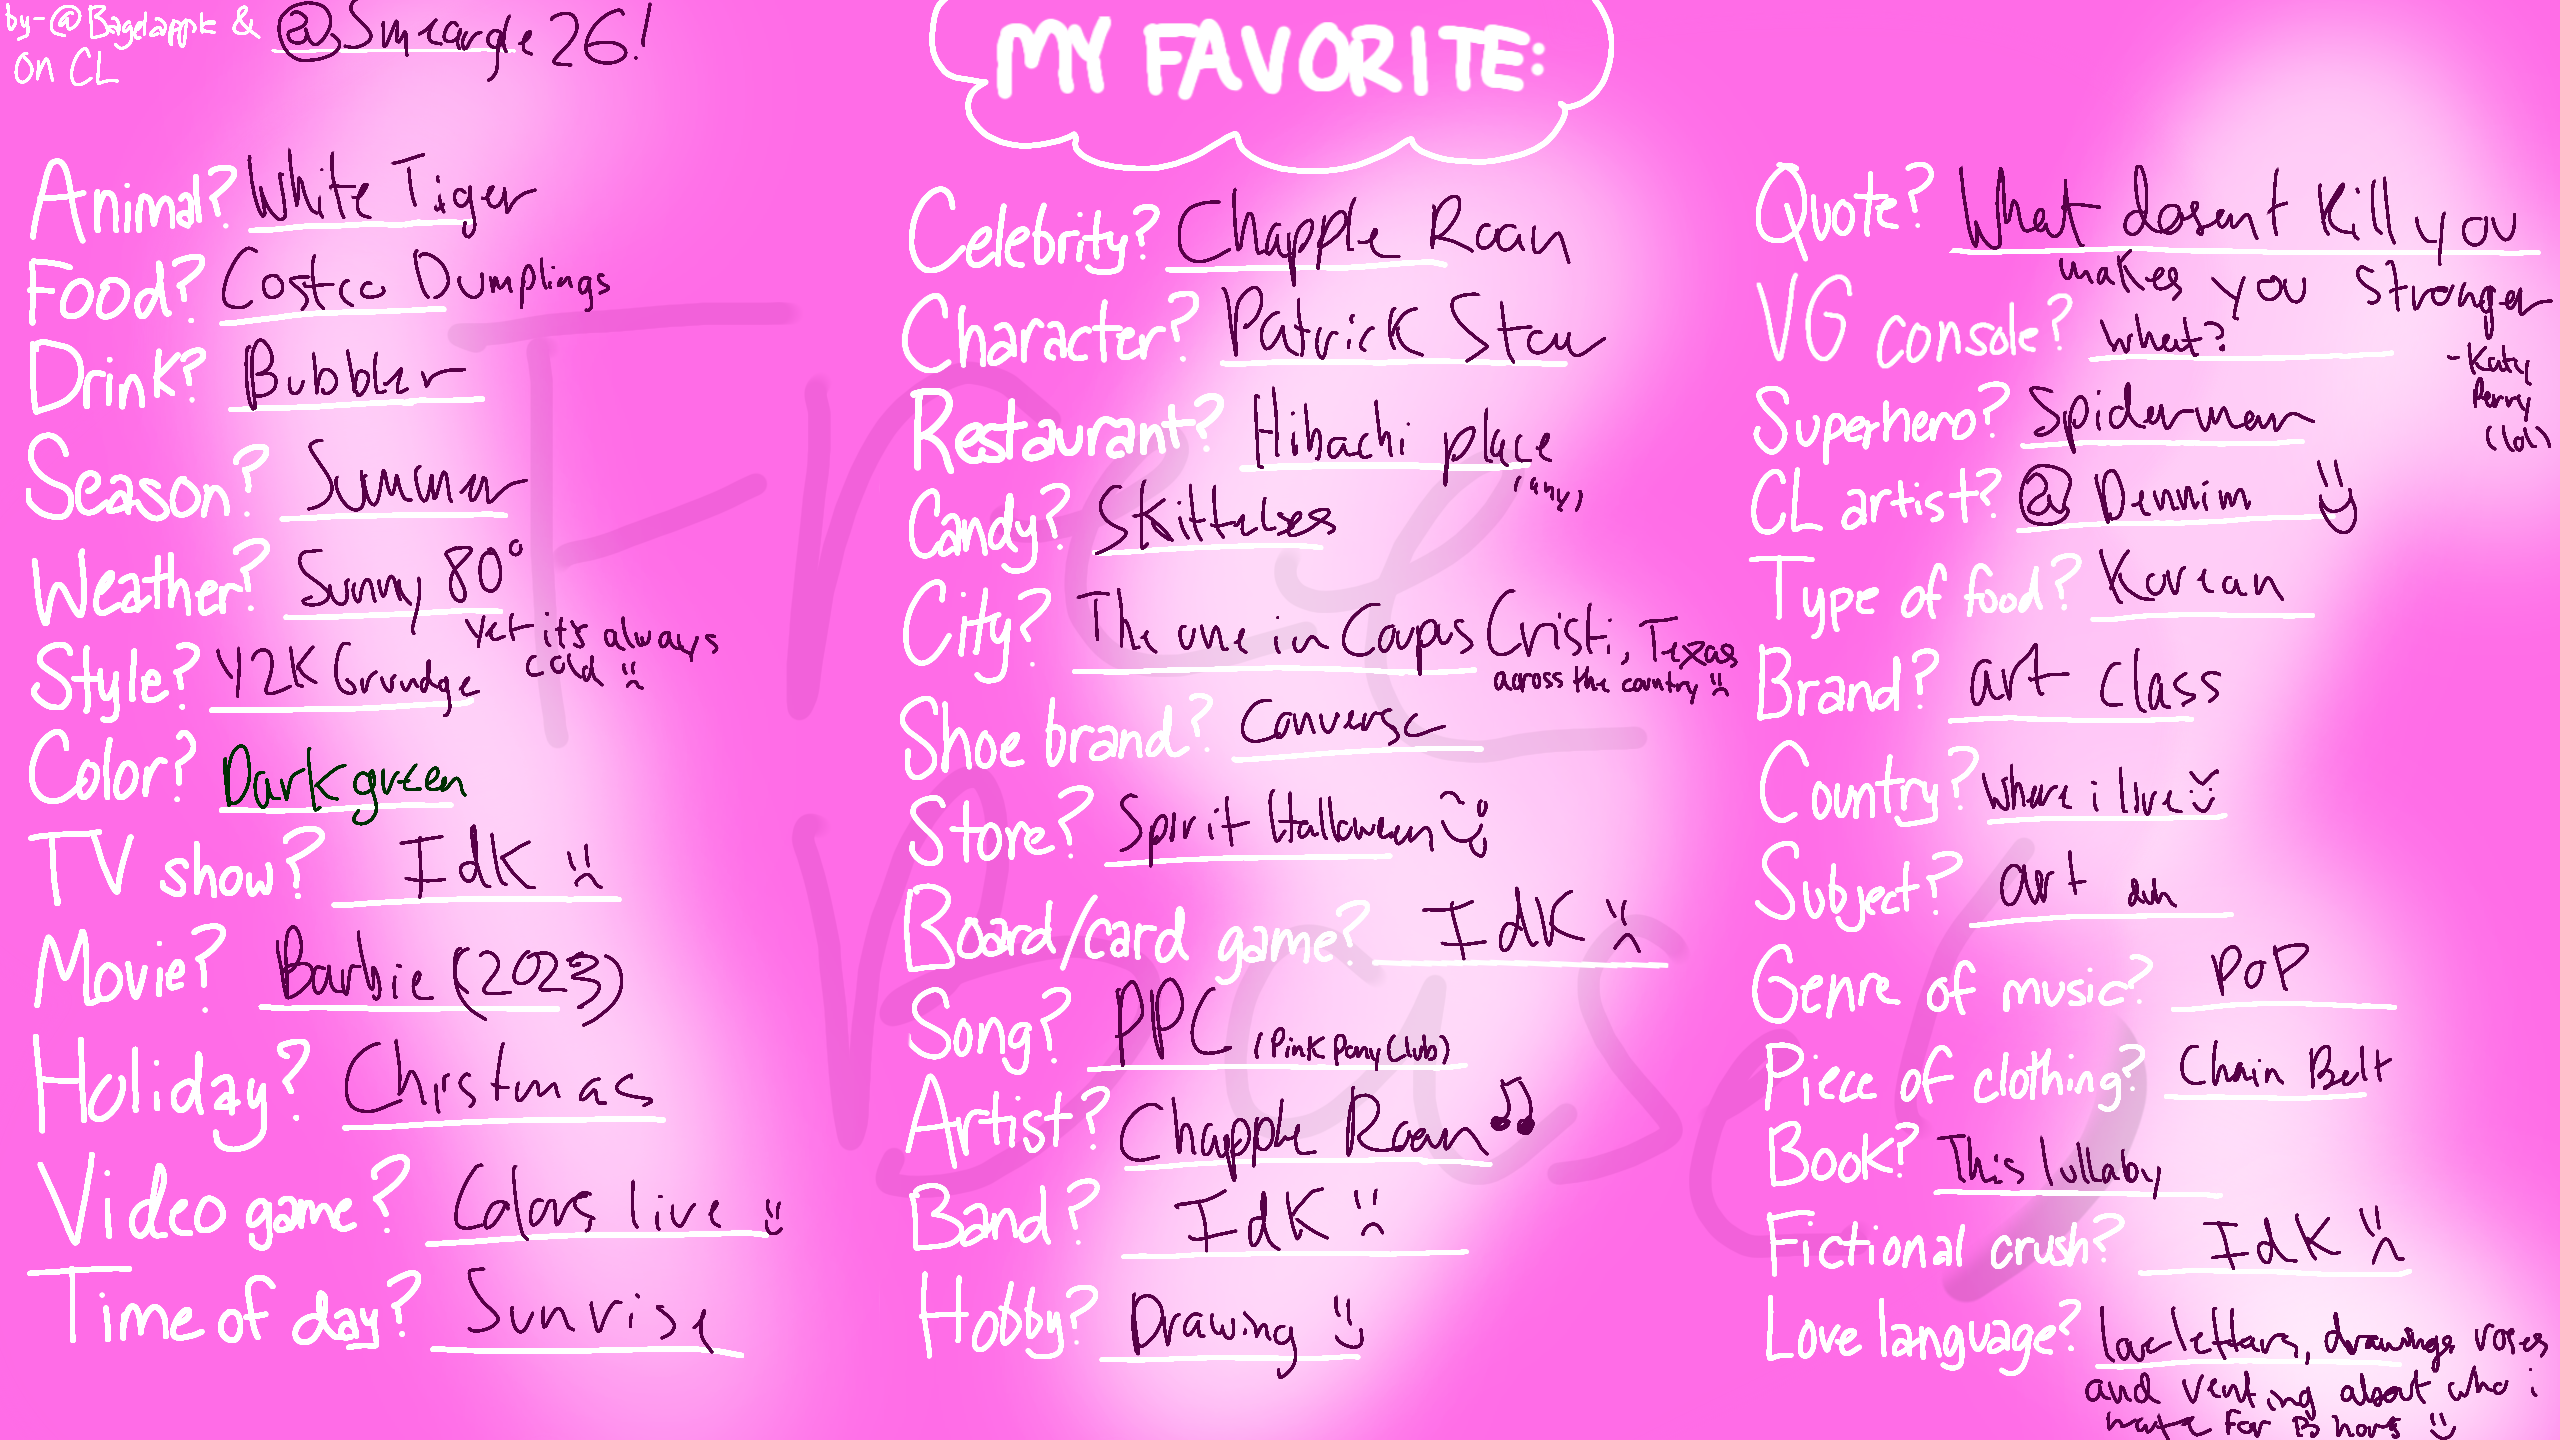 by-@Bagelappk & @Smeargle26!
on CL
MY FAVORITE:
Animal? White Tiger
Food? Costco Dumplings
Drink? Bubbler
Season? Summer
Weather? Sunny 80°
yet it's always
cold :(
Style? Y2K Grundge
Color? Dark green
TV show? Idk :(
Movie? Barbie (2023)
Holiday? Chrstmas
Video game? Colors live :)
Time of day? Sunrise
Celebrity? Chapple Roan
Character? Patrick Star
Restaurant? Hibachi place
(any)
Candy? Skittelses
City? The one in Coupus Cristi, Texas
across the country :(
Shoe brand? Converse
Store? Spirit Halloween :)
Board/card game? Idk :(
Song? PPC (Pink Pony Club)
Artist? Chapple Roan ♫
Band? Idk :(
Hobby? Drawing :)
Quote? What dosent kill you
makes you stronger
-Katy
Perry
(lol)
VG console? what?
Superhero? Spiderman
CL artist? @Dennim :)
Type of food? Korean
Brand? art class
Country? Where i live :)
Subject? art duh
Genre of music? POP
Piece of clothing? Chain Belt
Book? This lullaby
Fictional crush? Idk :(
Love language? love letters, drawings roses
and venting about who i
hate for 13 hours :)
Free
Base)